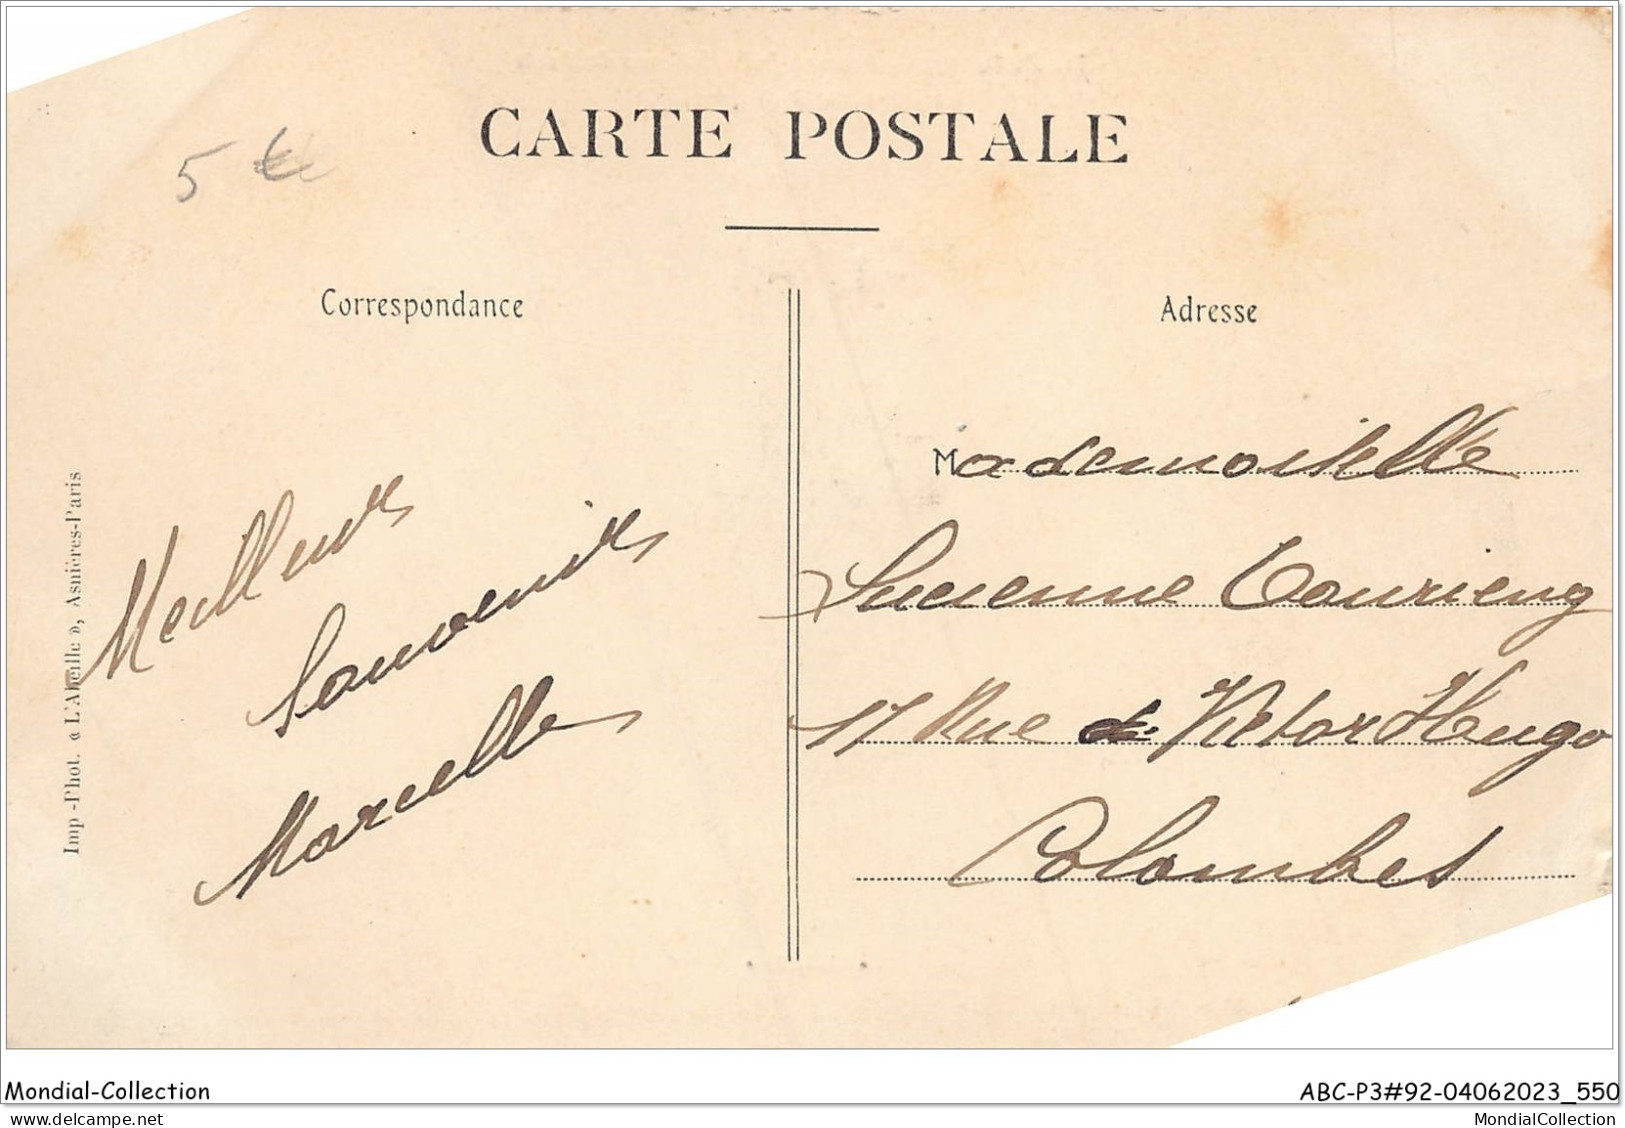 CARTE POSTALE
5 €
Correspondance
Adresse
Meilleurs
Souvenirs
Marcelle
Mademoiselle
Lucienne
17 Rue de Victor Hugo
Colombes
Imp-Phot. « L'Abeille », Asnières-Paris
Mondial-Collection
ABC-P3#92-04062023_550
MondialCollection
MondialCollection